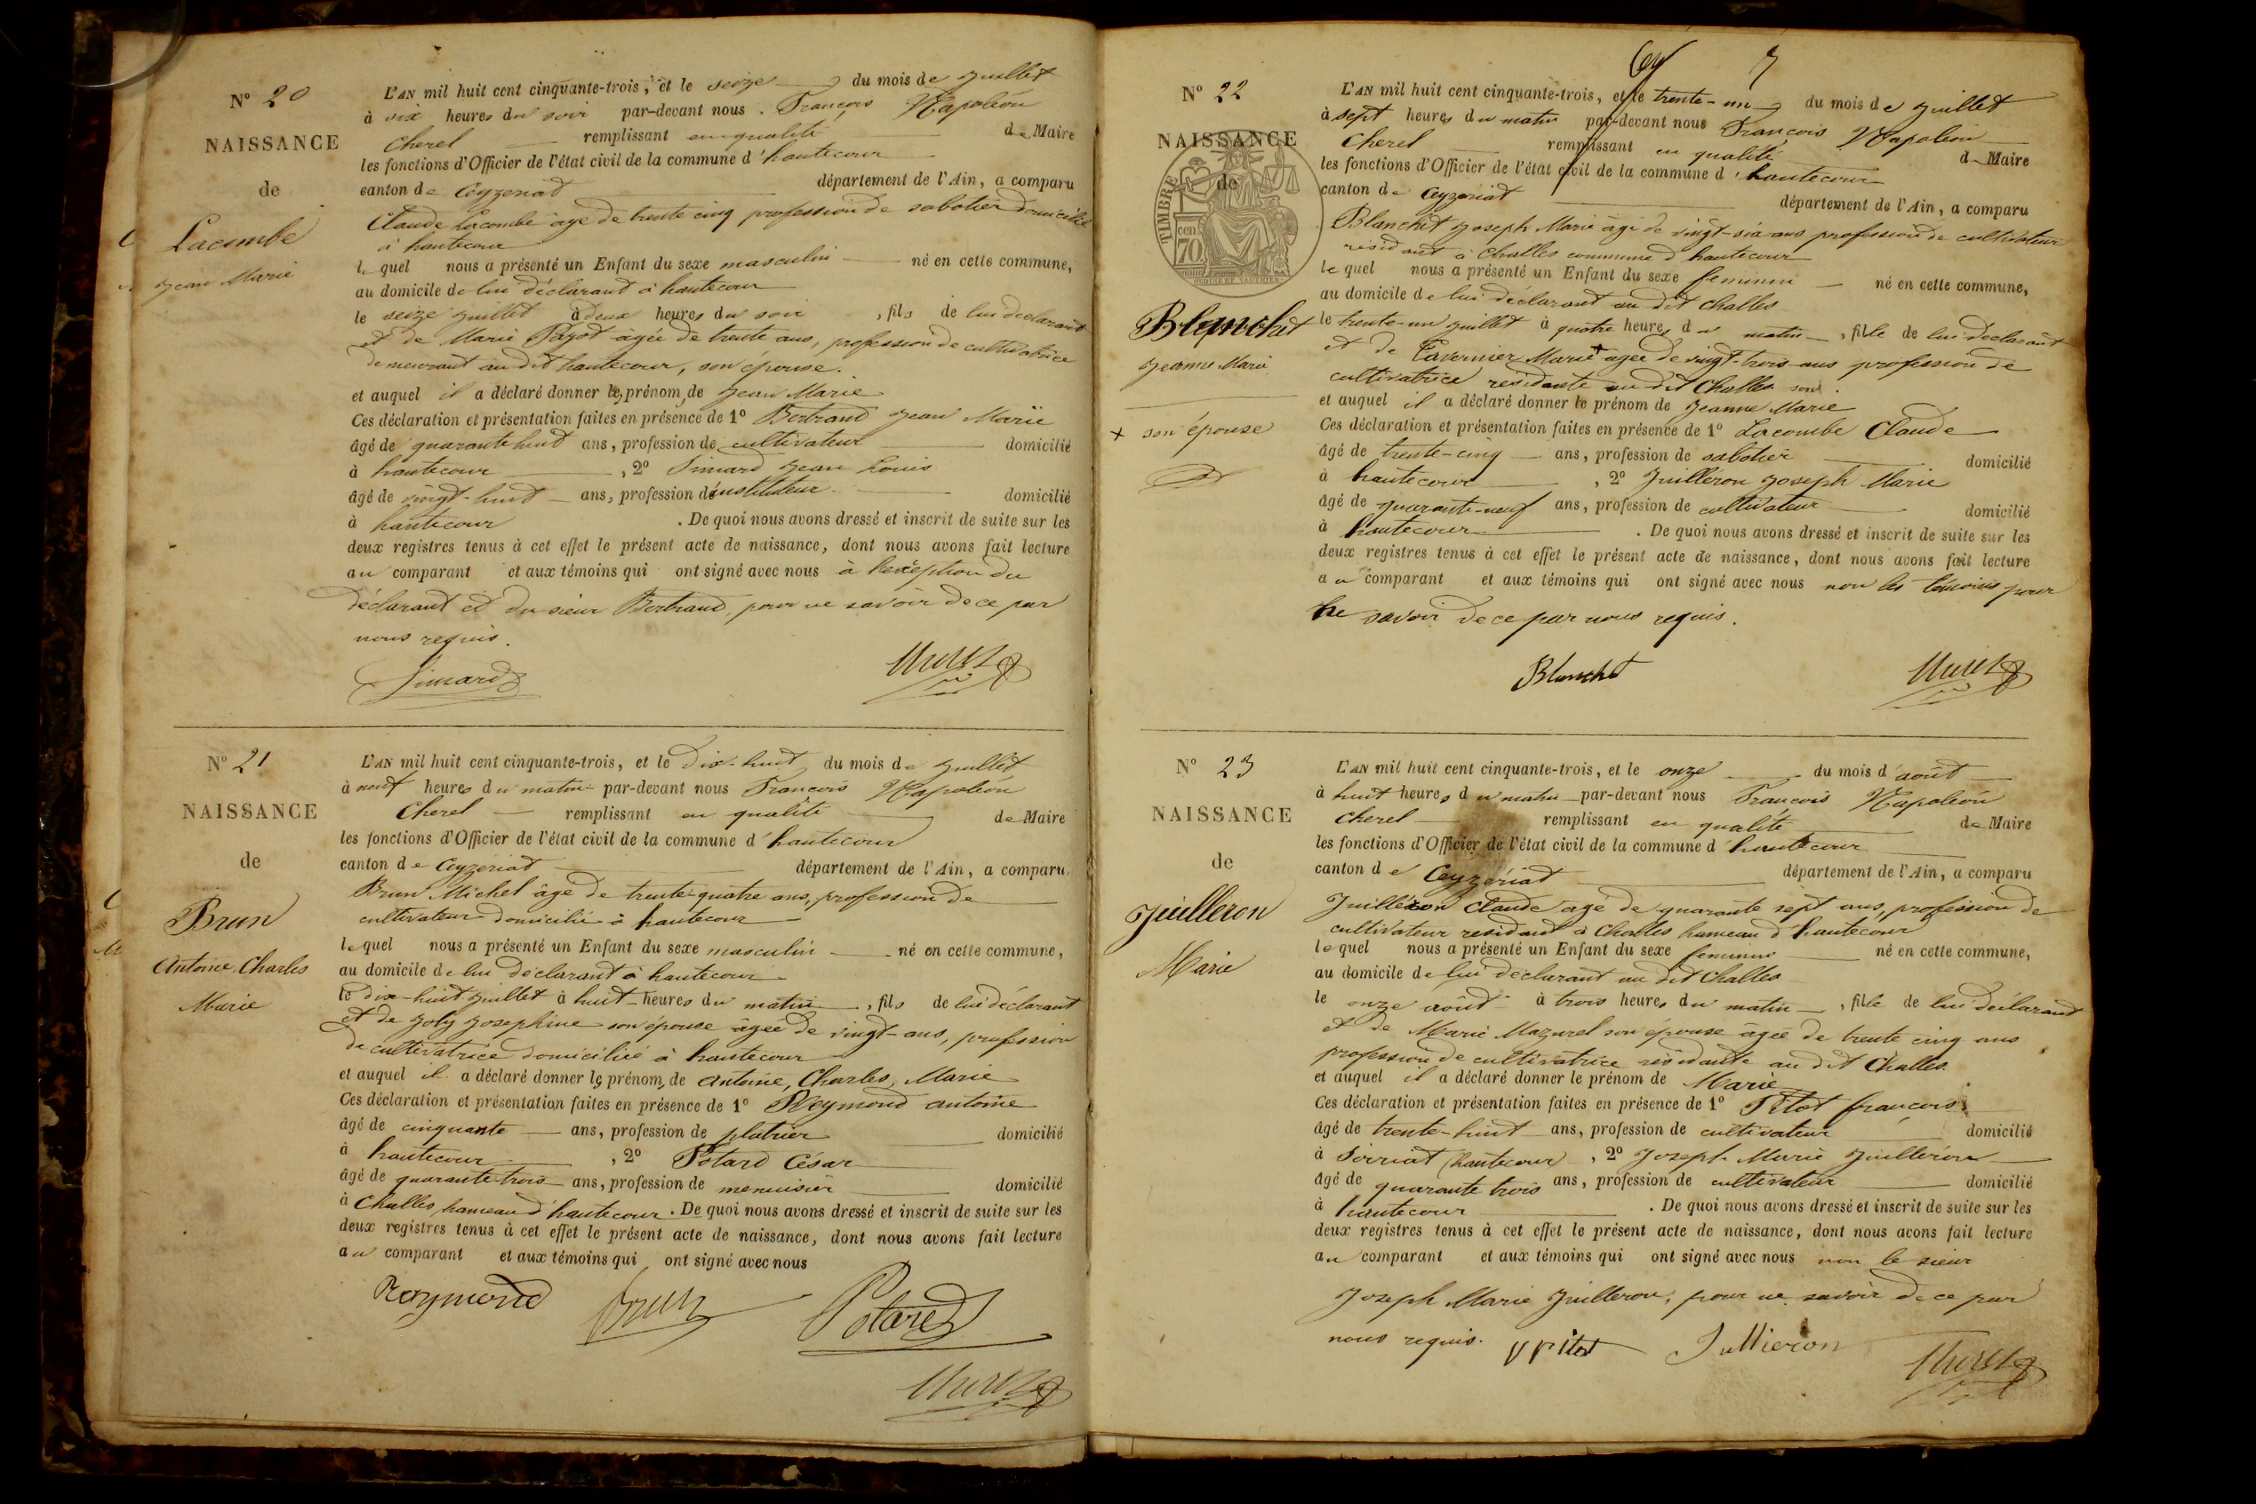 N° 20
NAISSANCE
de
Lacombe
Jean Marie
L'AN mil huit cent cinquante-trois, et le seize du mois de juillet
à six heures du soir par-devant nous François Napoléon
Cherel remplissant en qualité de Maire
les fonctions d'Officier de l'état civil de la commune d'hautecour
canton de Ceyzeriat département de l'Ain, a comparu
Claude Lacombe âgé de trente cinq profession de sabotier domicilié
à hautecour
lequel nous a présenté un Enfant du sexe masculin né en cette commune,
au domicile de lui déclarant à hautecour
le seize juillet à deux heures du soir, fils de lui déclarant
et de Marie Payot âgée de trente ans, profession de cultivatrice
demeurant au dit hautecour, son épouse.
et auquel il a déclaré donner les prénoms de Jean Marie
Ces déclaration et présentation faites en présence de 1° Bertrand Jean Marie
âgé de quarante huit ans, profession de cultivateur domicilié
à hautecour, 2° Simard Jean Louis
âgé de vingt-huit ans, profession d'instituteur domicilié
à hautecour. De quoi nous avons dressé et inscrit de suite sur les
deux registres tenus à cet effet le présent acte de naissance, dont nous avons fait lecture
au comparant et aux témoins qui ont signé avec nous à l'exception du
déclarant et du sieur Bertrand, pour ne savoir de ce par
nous requis.
Simard
N° 21
NAISSANCE
de
Brun
Antoine, Charles
Marie
L'AN mil huit cent cinquante-trois, et le dix-huit du mois de juillet
à neuf heures du matin par-devant nous François Napoléon
Cherel remplissant en qualité de Maire
les fonctions d'Officier de l'état civil de la commune d'hautecour
canton de Ceyzériat département de l'Ain, a comparu
Brun Michel âgé de trente-quatre ans, profession de
cultivateur domicilié à hautecour
lequel nous a présenté un Enfant du sexe masculin né en cette commune,
au domicile de lui déclarant à hautecour
le dix-huit juillet à huit heures du matin, fils de lui déclarant
et de Joly Josephine son épouse âgée de vingt-ans, profession
de cultivatrice domiciliée à hautecour
et auquel il a déclaré donner les prénoms de Antoine, Charles, Marie
Ces déclaration et présentation faites en présence de 1° Reymond antoine
âgé de cinquante ans, profession de platrier domicilié
à hautecour, 2° Potard César
âgé de quarante-trois ans, profession de menuisier domicilié
à Challes, hameau d'hautecour. De quoi nous avons dressé et inscrit de suite sur les
deux registres tenus à cet effet le présent acte de naissance, dont nous avons fait lecture
au comparant et aux témoins qui ont signé avec nous
Reymond Brun Potard
7
N° 22
NAISSANCE
de
TIMBRE
70
Blanchet
Jeanne Marie
+ son épouse
L'AN mil huit cent cinquante-trois, et le trente-un du mois de juillet
à sept heures du matin par-devant nous François Napoléon
Cherel remplissant en qualité de Maire
les fonctions d'Officier de l'état civil de la commune d'hautecour
canton de Ceyzeriat département de l'Ain, a comparu
Blanchet Joseph Marie âgé de vingt-six ans profession de cultivateur
résidant à Challes commune d'hautecour
lequel nous a présenté un Enfant du sexe feminin né en cette commune,
au domicile de lui déclarant au dit Challes
le trente-un juillet à quatre heures du matin, fille de lui déclarant
et de Tavernier Marie + agée de vingt-trois ans profession de
cultivatrice residante au dit Challes
et auquel il a déclaré donner le prénom de Jeanne Marie
Ces déclaration et présentation faites en présence de 1° Lacombe Claude
âgé de trente-cinq ans, profession de sabotier domicilié
à hautecour, 2° Juilleron Joseph Marie
âgé de quarante-neuf ans, profession de cultivateur domicilié
à hautecour. De quoi nous avons dressé et inscrit de suite sur les
deux registres tenus à cet effet le présent acte de naissance, dont nous avons fait lecture
au comparant et aux témoins qui ont signé avec nous non les témoins pour
ne savoir de ce par nous requis.
Blanchet
N° 23
NAISSANCE
de
Juilleron
Marie
L'AN mil huit cent cinquante-trois, et le onze du mois d'août
à huit heures du matin par-devant nous François Napoléon
Cherel remplissant en qualité de Maire
les fonctions d'Officier de l'état civil de la commune d'hautecour
canton de Ceyzériat département de l'Ain, a comparu
Juilleron Claude agé de quarante sept ans, profession de
cultivateur residant à Challes hameau d'hautecour
lequel nous a présenté un Enfant du sexe feminin né en cette commune,
au domicile de lui déclarant au dit Challes
le onze août à trois heures du matin, fille de lui déclarant
et de Marie Mazurel son épouse âgée de trente cinq ans
profession de cultivatrice résidante au dit Challes
et auquel il a déclaré donner le prénom de Marie
Ces déclaration et présentation faites en présence de 1° Pitot françois
âgé de trente-huit ans, profession de cultivateur domicilié
à (hautecour), 2° Joseph Marie Juilleron
âgé de quarante trois ans, profession de cultivateur domicilié
à hautecour. De quoi nous avons dressé et inscrit de suite sur les
deux registres tenus à cet effet le présent acte de naissance, dont nous avons fait lecture
au comparant et aux témoins qui ont signé avec nous non le sieur
Joseph Marie Juilleron, pour ne savoir de ce par
nous requis. Pitot Jullieron